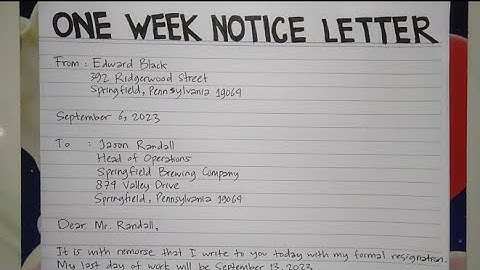 ONE WEEK NOTICE LETTER
From : Edward Black
392 Ridgerwood Street
Springfield, Pennsylvania 19064
September 6, 2023
To : Jason Randall
Head of Operations
Springfield Brewing Company
874 Valley Drive
Springfield, Pennsylvania 19064
Dear Mr. Randall,
It is with remorse that I write to you today with my formal resignation.
My last day of work will be September 13, 2023